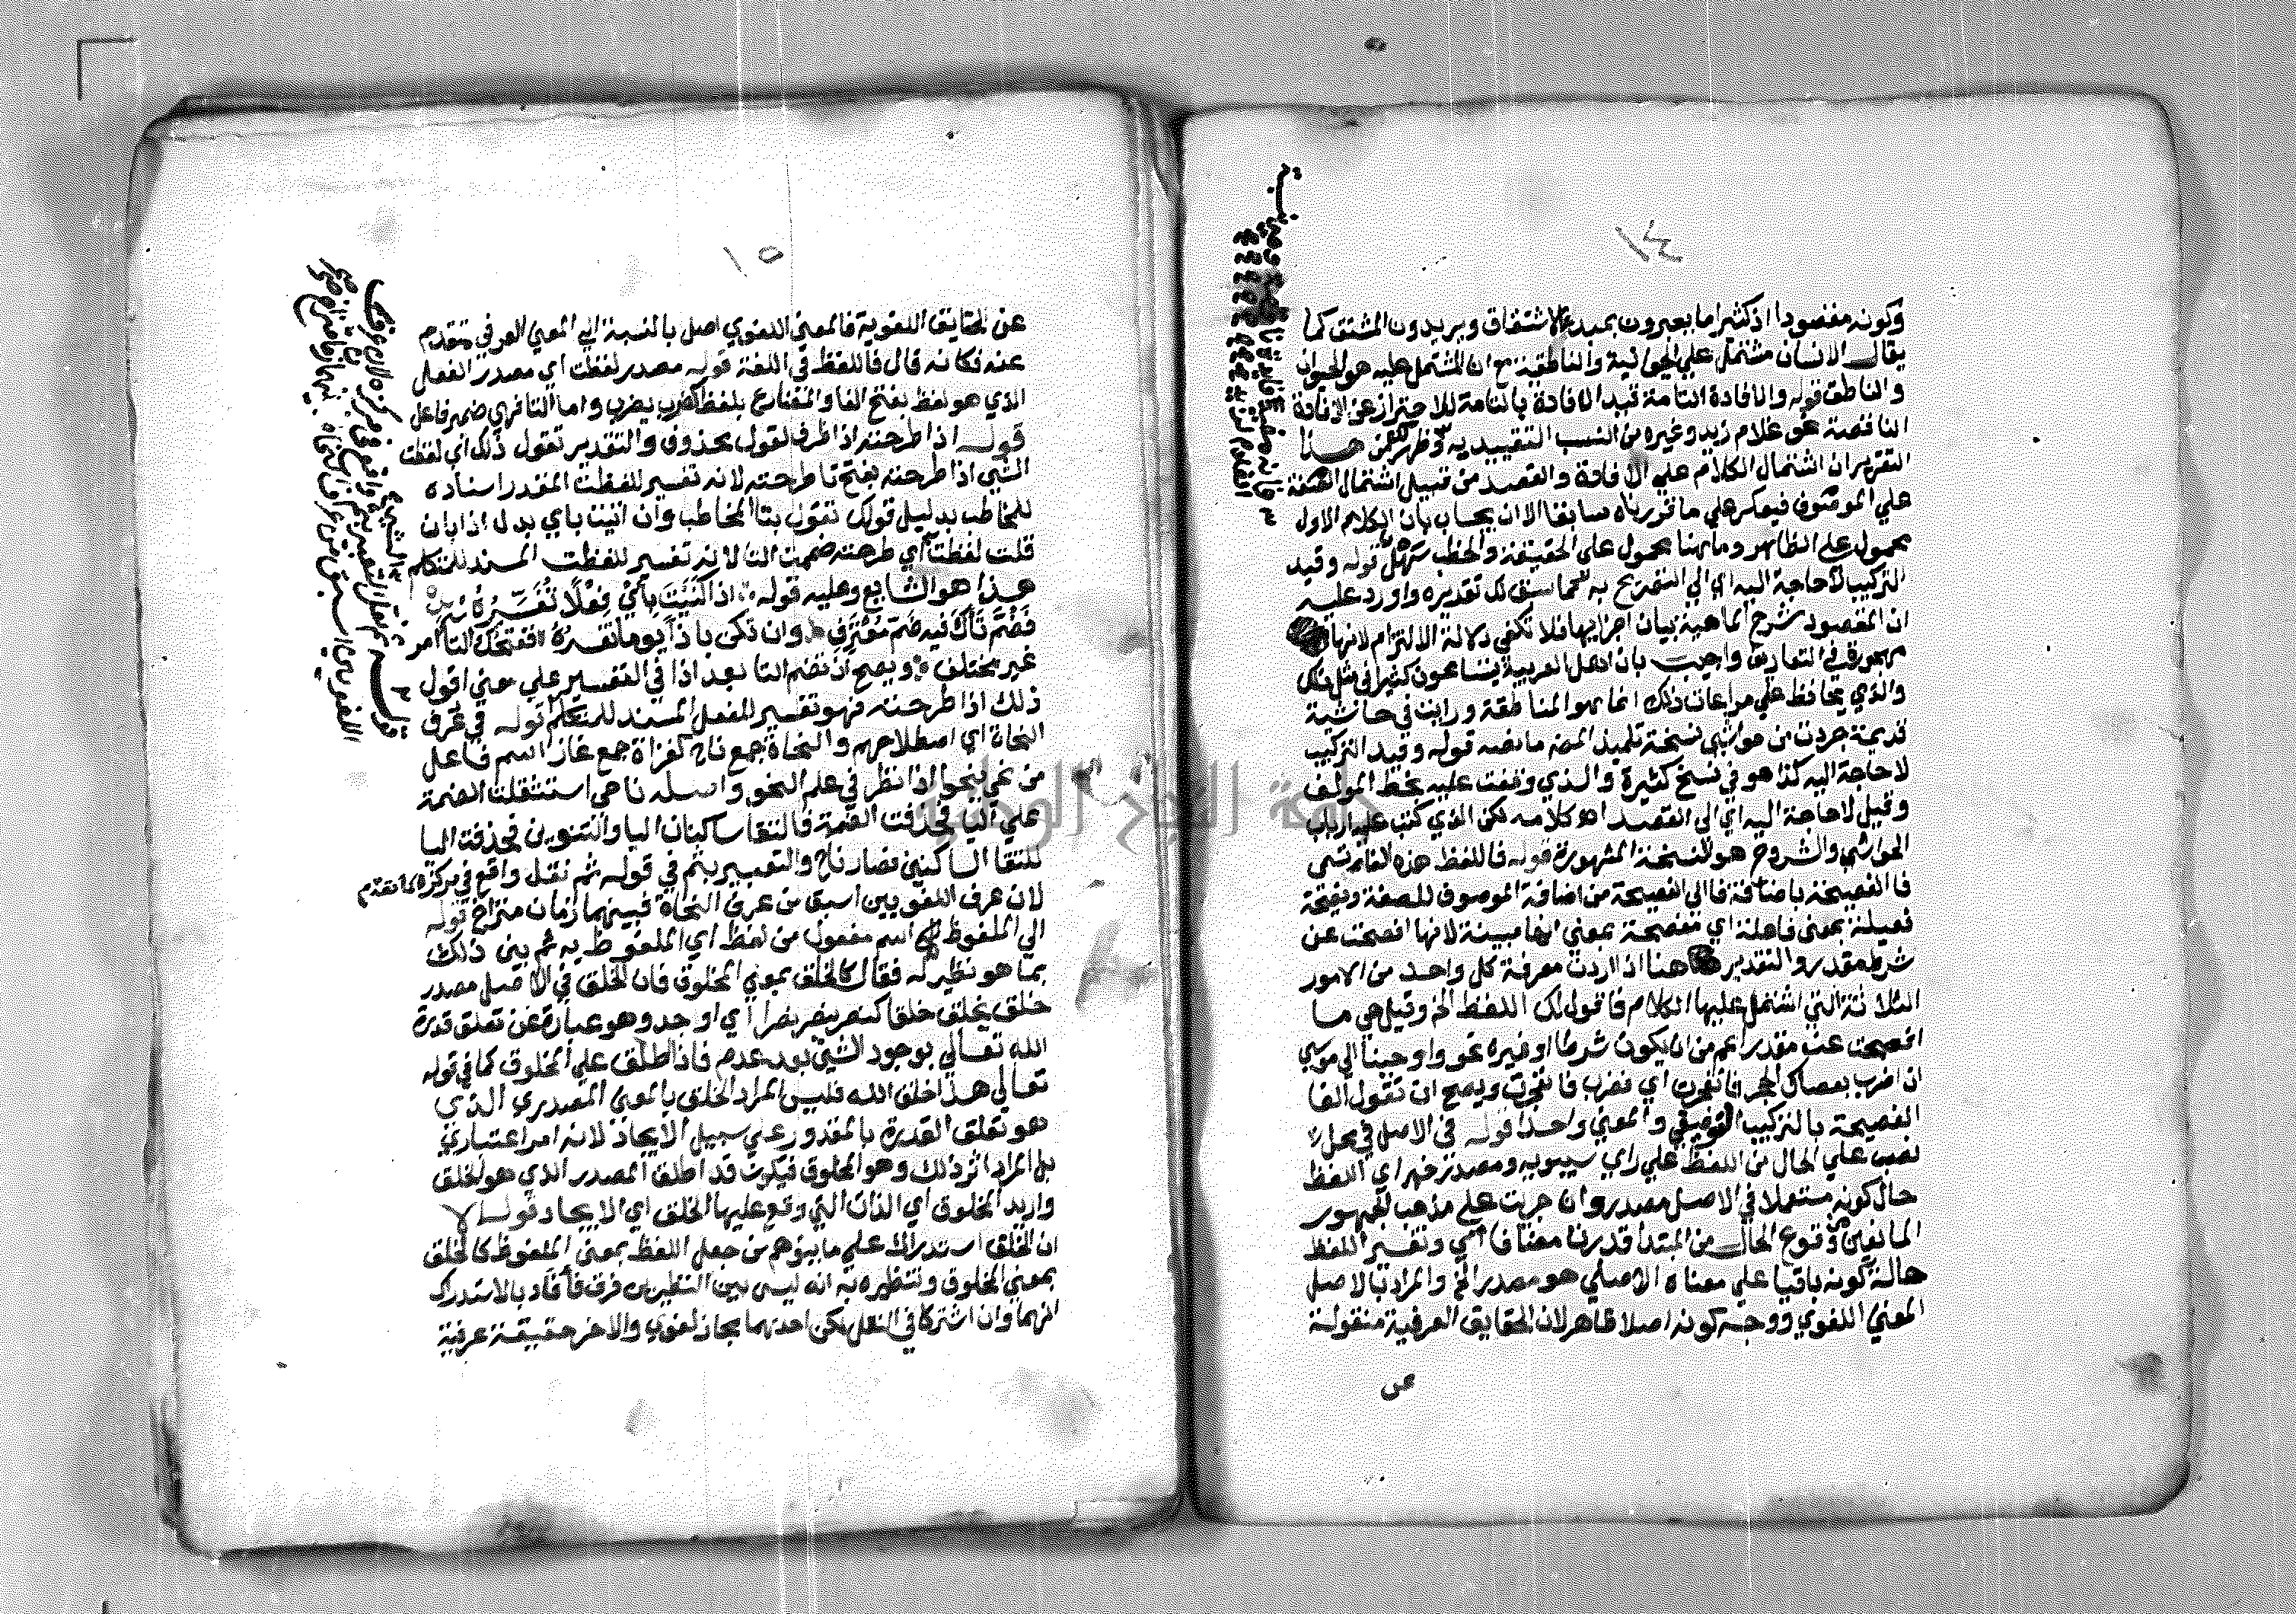 ١٤
وكونه مقصودا اذ كثيرا ما يعبرون بمبدء الاشتقاق ويريدون المشتق كما
يقال الانسان مشتمل علي الحيوانية والناطقية مع ان المشتمل عليه هو الحيوان
والناطق قوله والافادة التامة قيد الافادة بالتامة للاحتراز عن الافادة
الناقصة نحو غلام زيد وغيره من النسب التقييدية وظهر من هذا
التقرير ان اشتمال الكلام علي الافادة والقصد من قبيل اشتمال الصفة
علي الموصوف فيعكر علي ما قررناه سابقا الا ان يجاب بان الكلام الاول
محمول علي الظاهر وما هنا محمول علي الحقيقة والخطب سهل قوله وقيد
التركيب لا حاجة اليه اي الي التصريح به لما سبق لك تقديره واورد عليه
ان المقصود شرح الماهية ببيان اجزايها فلا تكفي دلالة الالتزام لانها
مهجورة في التعاريف واجيب بان اهل العربية يتسامحون كثيرا في مثل ذلك
والذي يحافظ علي مراعات ذلك انما هو المناطقة ورايت في حاشية
قديمة جردت من حواشي نسخة تلميذ المص ما نصه قوله وقيد التركيب
لا حاجة اليه كذا هو في نسخ كثيرة والذي وقفت عليه بخط المولف
وقيل لا حاجة اليه اي الي القصد اه كلامه لكن الذي كتب عليه ارباب
الحواشي والشروح هو النسخة المشهورة قوله فاللفظ هذه الفاء تسمي
فا الفصيحة باضافة فا الي الفصيحة من اضافة الموصوف للصفة وفصيحة
فعيلة بمعني فاعلة اي مفصحة بمعني انها مبينة لانها افصحت عن
شرط مقدر والتقدير هاهنا اذا اردت معرفة كل واحد من الامور
الثلاثة التي اشتمل عليها الكلام فاقول لك اللفظ الخ وقيل هي ما
افصحت عن مقدر اعم من ان يكون شرطا او غيره نحو واوحينا الي موسي
ان اضرب بعصاك الحجر فانفجرت اي فضرب فانفجرت ويصح ان تقول الفا
الفصيحة بالتركيب التوصيفي والمعني واحد قوله في الاصل في محل
نصب علي الحال من اللفظ علي راي سيبويه ومصدر خبر اي اللفظ
حال كونه مستعملا في الاصل مصدر وان جريت علي مذهب الجمهور
المانعين من وقوع الحال من المبتدا قدرنا مضافا اي وتفسير اللفظ
حالة كونه باقيا علي معناه الاصلي هو مصدر الخ والمراد بالاصل
المعني اللغوي ووجه كونه اصلا ظاهر لان الحقايق العرفية منقولة
١٥
عن الحقايق اللغوية فالمعني اللغوي اصل بالنسبة الي المعني العرفي متقدم
عنه فكانه قال فاللفظ في اللغة قوله مصدر لفظت اي مصدر الفعل
الذي هو لفظ بفتح الفا والمضارع يلفظ كضرب يضرب واما التا فهي ضمير فاعل
قوله اذا طرحته اذا ظرف لقول محذوف والتقدير تقول ذلك اي لفظت
الشي اذا طرحته بفتح تا طرحته لانه تفسير للفظت المقدر اسناده
للمخاطب بدليل قولك تقول بتا المخاطب وان اتيت باي بدل اذا بان
قلت لفظت اي طرحته ضممت التا لانه تفسير للفظت المسند للمتكلم
هذا هو الشايع وعليه قوله اذا كَنَيْتَ بِأَيْ فِعْلًا تُفَسِّرُهُ
فَضُمَّ تَاءَك فيه ضَمَّ مُعْتَرِفِ وان تكن باذا يوما تفسره ففتحك التا امر
غير مختلف ويصح ان تضم التا بعد اذا في التفسير علي معني اقول
ذلك اذا طرحته فهو تفسير للفعل المسند للمتكلم قوله في عرف
النحاة اي اصطلاحهم والنحاة جمع ناح كغزاة جمع غاز اسم فاعل
من نحي ينحوا اذا نظر في علم النحو واصله ناحي استثقلت الضمة
علي اليا فحذفت الضمة فالتقا ساكنان اليا والتنوين فحذفت اليا
لالتقا الساكنين فصار ناح والتعبير بثم في قوله ثم نقل واقع في مركزه لما تقدم
لان عرف اللغويين اسبق من عرف النحاة فبينهما زمان متراخ قوله
الي الملفوظ به اسم مفعول من لفظ اي الملفوظ به ثم بني ذلك
بما هو نظير له فقال كالخلق بمعني المخلوق فان الخلق في الاصل مصدر
خلق يخلق خلقا كنصر ينصر نصرا اي اوجد وهو عبارة عن تعلق قدرة
الله تعالي بوجود الشي بعد عدم فاذا اطلق علي المخلوق كما في قوله
تعالي هذا خلق الله فليس المراد الخلق بالمعني المصدري الذي
هو تعلق القدرة بالمقدور علي سبيل الايجاد لانه امر اعتباري
بل المراد اثر ذلك وهو المخلوق فيكون قد اطلق المصدر الذي هو الخلق
واريد المخلوق اي الذات التي وقع عليها الخلق اي الايجاد قوله الا
ان الخلق استدراك علي ما يتوهم من جعل اللفظ بمعني الملفوظ كالخلق
بمعني المخلوق وتنظيره به انه ليس بين النظيرين فرق فافاد بالاستدراك
انهما وان اشتركا في النقل لكن احدهما مجاز لغوي والاخر حقيقة عرفية
جامعة النجاح الوطنية